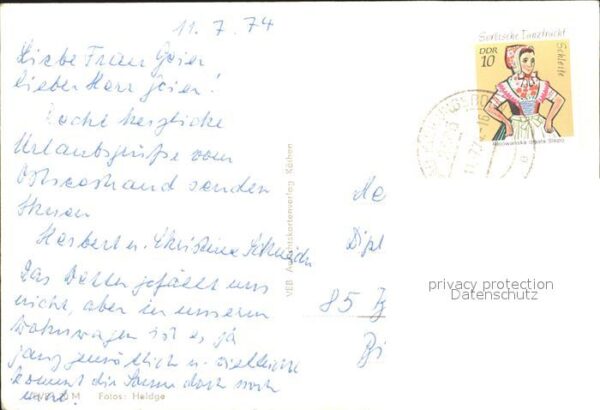 11. 7. 74
Liebe Frau Geier
lieber Herr Geier!
Recht herzliche
Urlaubsgrüße vom
Ostseestrand senden
Ihnen
Herbert u. Christina Schneider
Das Wetter gefällt uns
nicht, aber in unserem
Wohnwagen ist es ja
ganz gemütlich u. vielleicht
kommt die Sonne doch noch
Fotos: Heldge
VEB Ansichtskartenverlag Köthen
He
Dipl
85
Sorbische Tanztracht
Schleife
DDR
10
privacy protection
Datenschutz